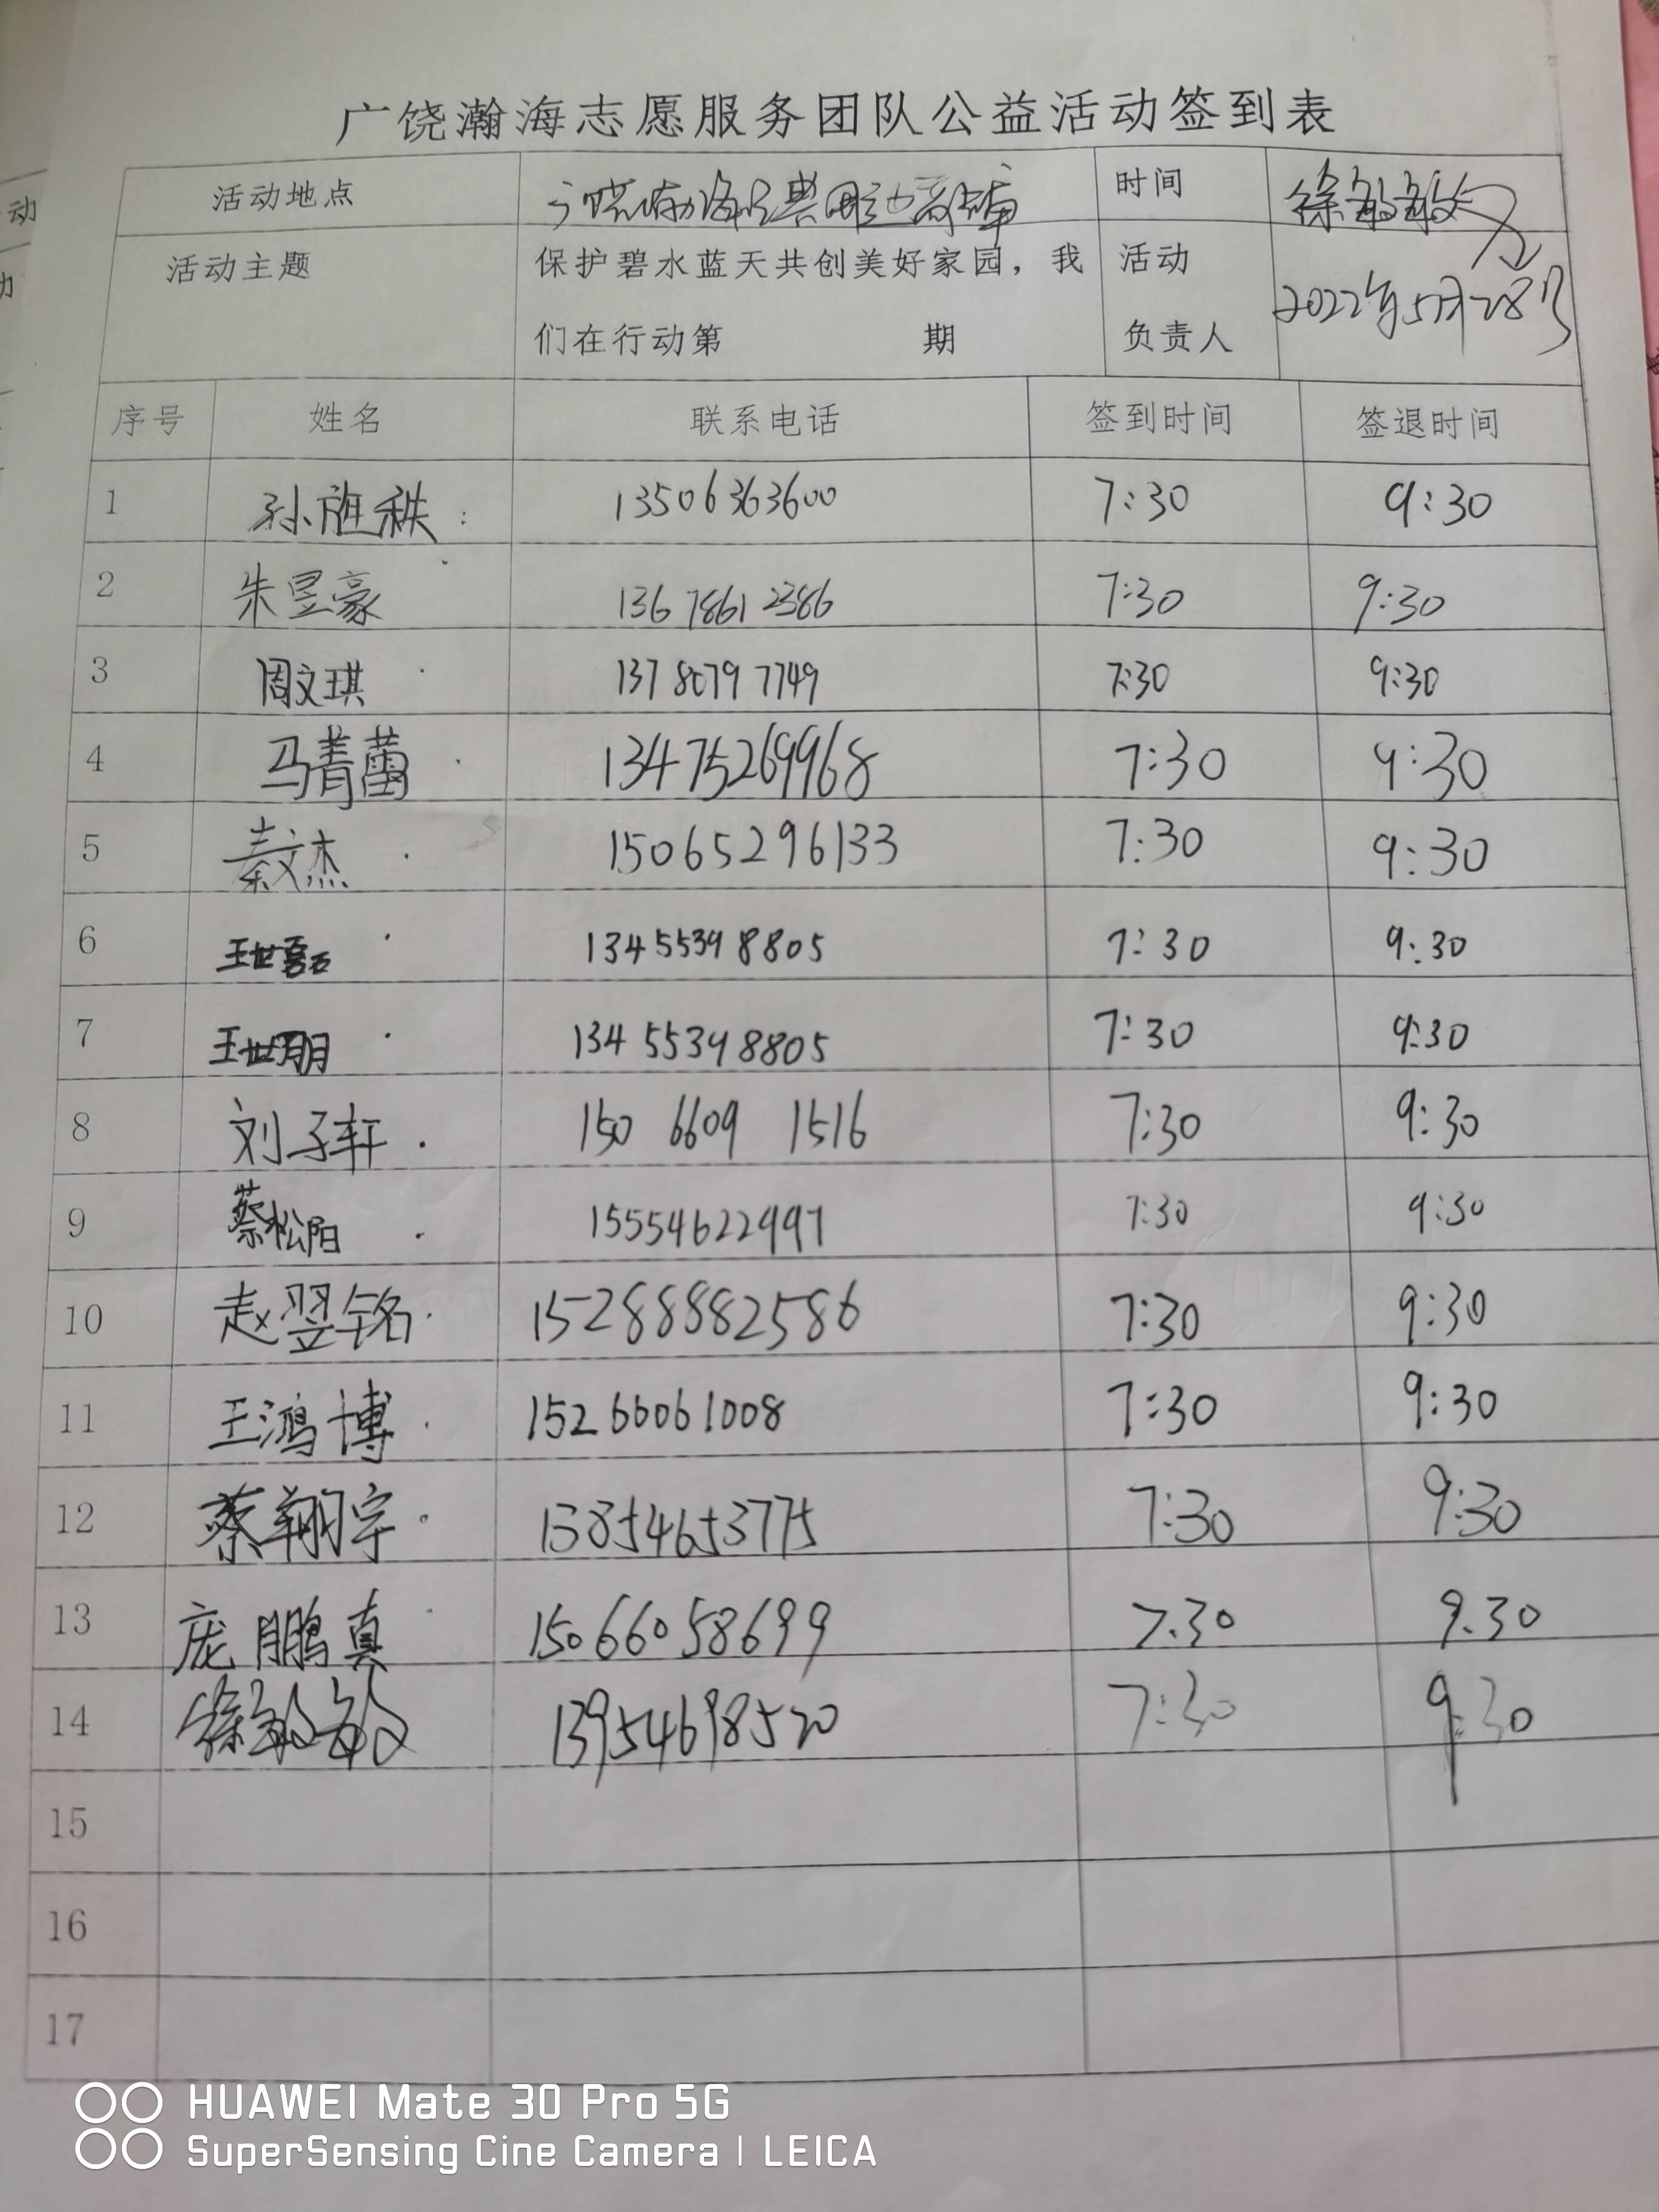 广饶瀚海志愿服务团队公益活动签到表
活动地点 时间 徐敏敏
活动主题 保护碧水蓝天共创美好家园，我 活动
们在行动第 期 负责人 2022年5月28日
序号 姓名 联系电话 签到时间 签退时间
1 孙 秩 13506363600 7:30 9:30
2 朱昱豪 136 7861 2386 7:30 9:30
3 周文琪 137 8079 7749 7:30 9:30
4 马菁蕾 13475269968 7:30 9:30
5 秦文杰 15065296133 7:30 9:30
6 王世磊 13455398805 7:30 9:30
7 王世朋 134 55398805 7:30 9:30
8 刘子轩 150 6609 1516 7:30 9:30
9 蔡松阳 15554622997 7:30 9:30
10 赵翌铭 15288882586 7:30 9:30
11 王鸿博 15266061008 7:30 9:30
12 蔡翔宇 13854653775 7:30 9:30
13 庞鹏真 15066058699 7.30 9.30
14 徐敏敏 13954698520 7:30 9:30
15
16
17
HUAWEI Mate 30 Pro 5G
SuperSensing Cine Camera | LEICA